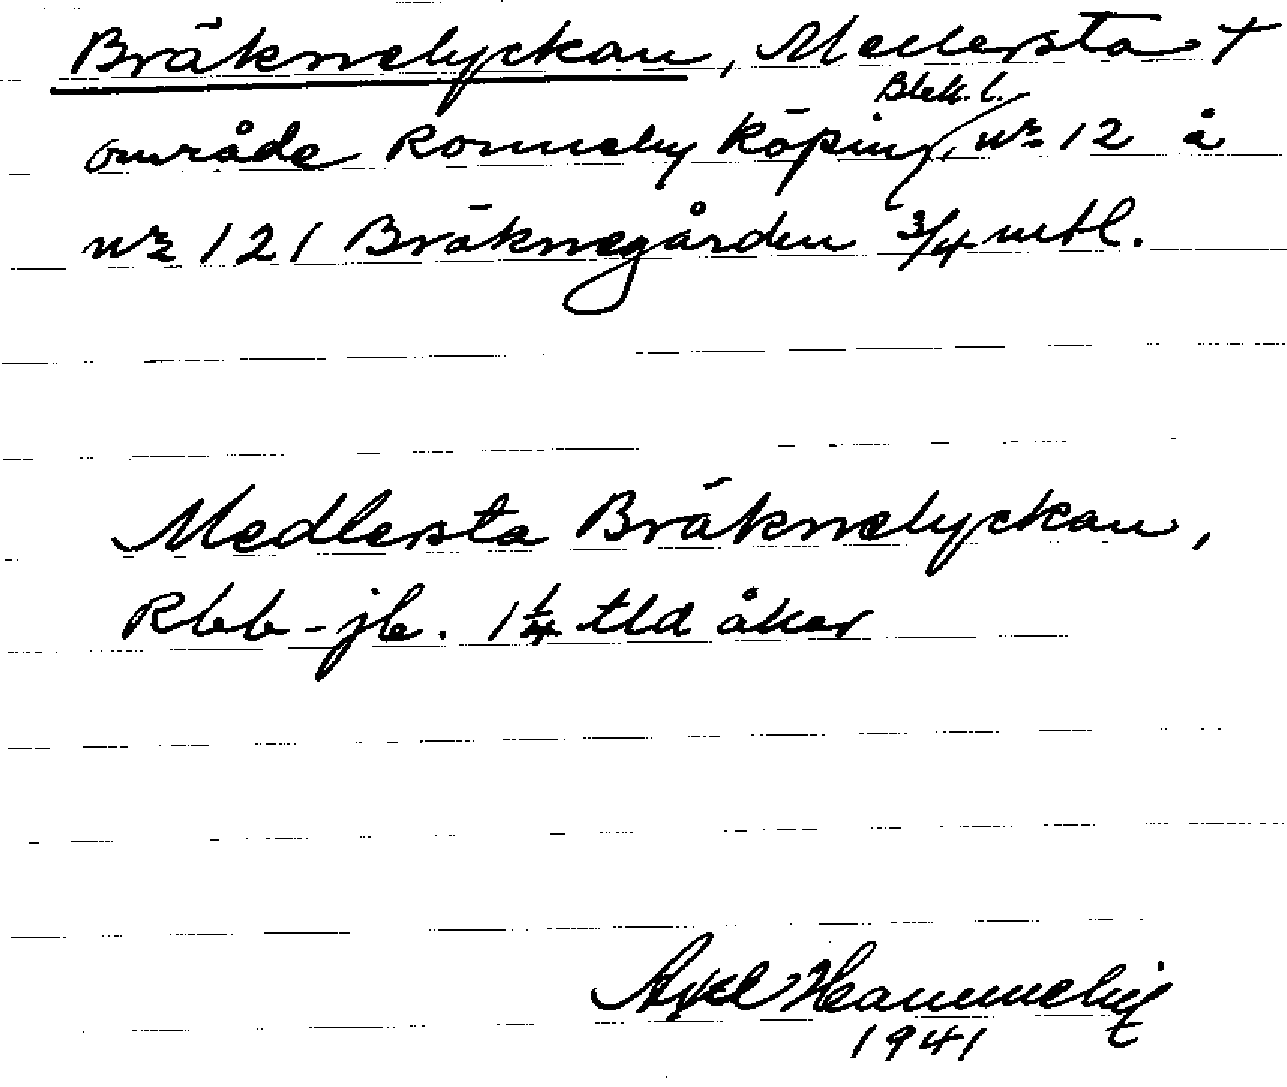 Bräknelyckan, Medlersta +
Blek. l.
område Ronneby köping, nr 12 å
nr 121 Bräknegården 3/4 mtl.
Medlersta Bräknelyckan,
Rbb-jb. 1 1/4 tld åker
Axel
1941